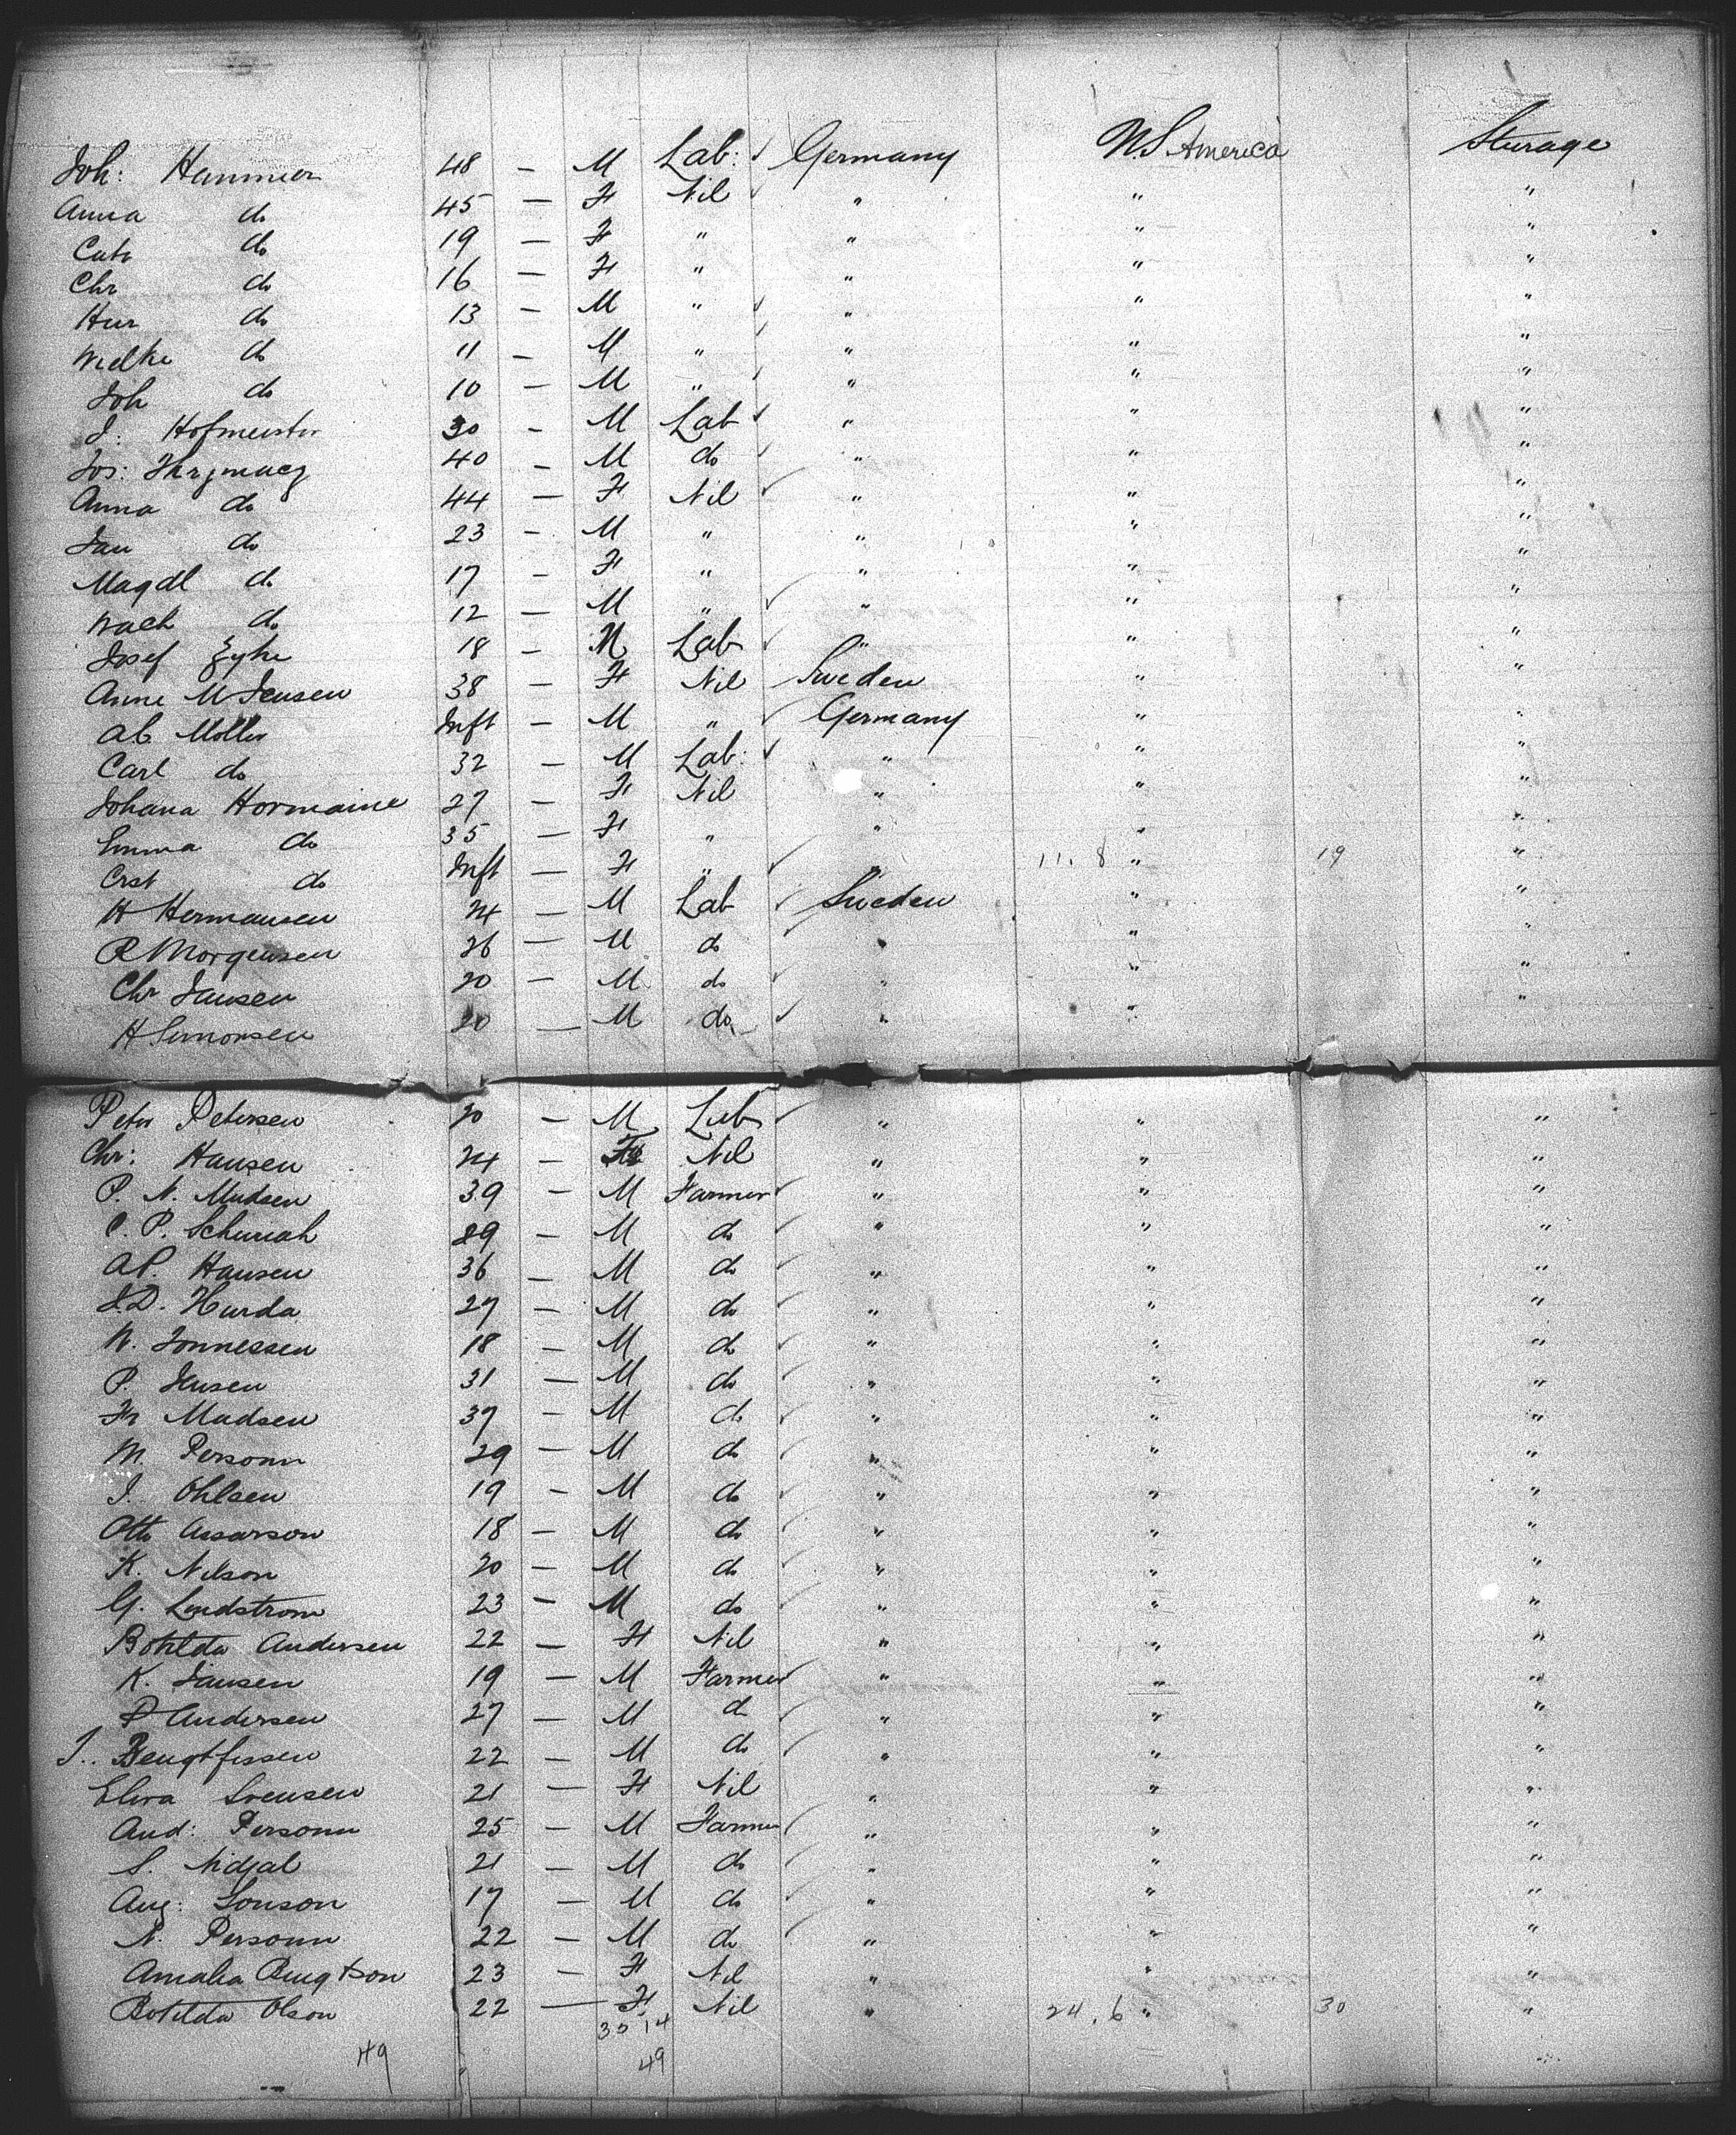 Joh: Hammer 48 — M Lab: Germany US America Sturage
Anna do 45 — F Nil " " "
Cath do 19 — F " " " "
Chr do 16 — F " " " "
Hur do 13 — M " " " "
do 11 — M " " " "
Joh do 10 — M " " " "
J: Hofmeister 30 — M Lab " " "
Jos: 40 — M do " " "
Anna do 44 — F Nil " " "
Jan do 23 — M " " " "
Magdl do 17 — F " " " "
do 12 — M " " " "
Josef 18 — M Lab " " "
Anne M Jensen 38 — F Nil Sweden " "
Ab Moller Inft — M " Germany " "
Carl do 32 — M Lab: " " "
Johana Hormaine 27 — F Nil " " "
Emma do 35 — F " " " "
Crst do Inft — F " " 11. 8 " 19 "
H Hermansen 24 — M Lab Sweden " "
R Morgensen 26 — M do " " "
Chr Jansen 20 — M do " " "
H Simonsen 20 — M do " " "
Peter Petersen 20 — M Lab " " "
Chr: Hansen 24 — F Nil " " "
P. N. Madsen 39 — M Farmer " " "
C. P. 29 — M do " " "
A P. Hansen 36 — M do " " "
J. D. Hurda 27 — M do " " "
N. Tonnessen 18 — M do " " "
P. Jensen 31 — M do " " "
Fr Madsen 37 — M do " " "
M. Personn 29 — M do " " "
J. Ohlsen 19 — M do " " "
Otto Assarson 18 — M do " " "
K. Nilson 20 — M do " " "
G. Lindstrom 23 — M do " " "
Bothilda Andersen 22 — F Nil " " "
K. Jansen 19 — M Farmer " " "
P Andersen 27 — M d " " "
J. 22 — M do " " "
Elna Svensen 21 — F Nil " " "
And: Personn 25 — M Farmer " " "
S. Nidjal 21 — M do " " "
Aug: Jonson 17 — M do " " "
N. Personn 22 — M do " " "
Amalia Bengtson 23 — F Nil " " "
Botilda Olson 22 — F Nil " 24. 6 " 30 "
35 14
49 49